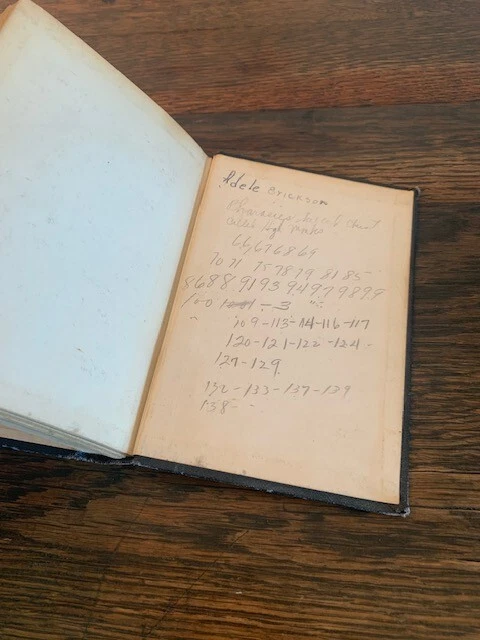 Adele Erickson
Pharisees
Calls
66,67 68 69
70 71 75 78 79 81 85
86 88 91 93 94 97 98 99
100 - 3
109-113-114-116-117
120-121-122-124-
127-129
130-133-137-139
138-